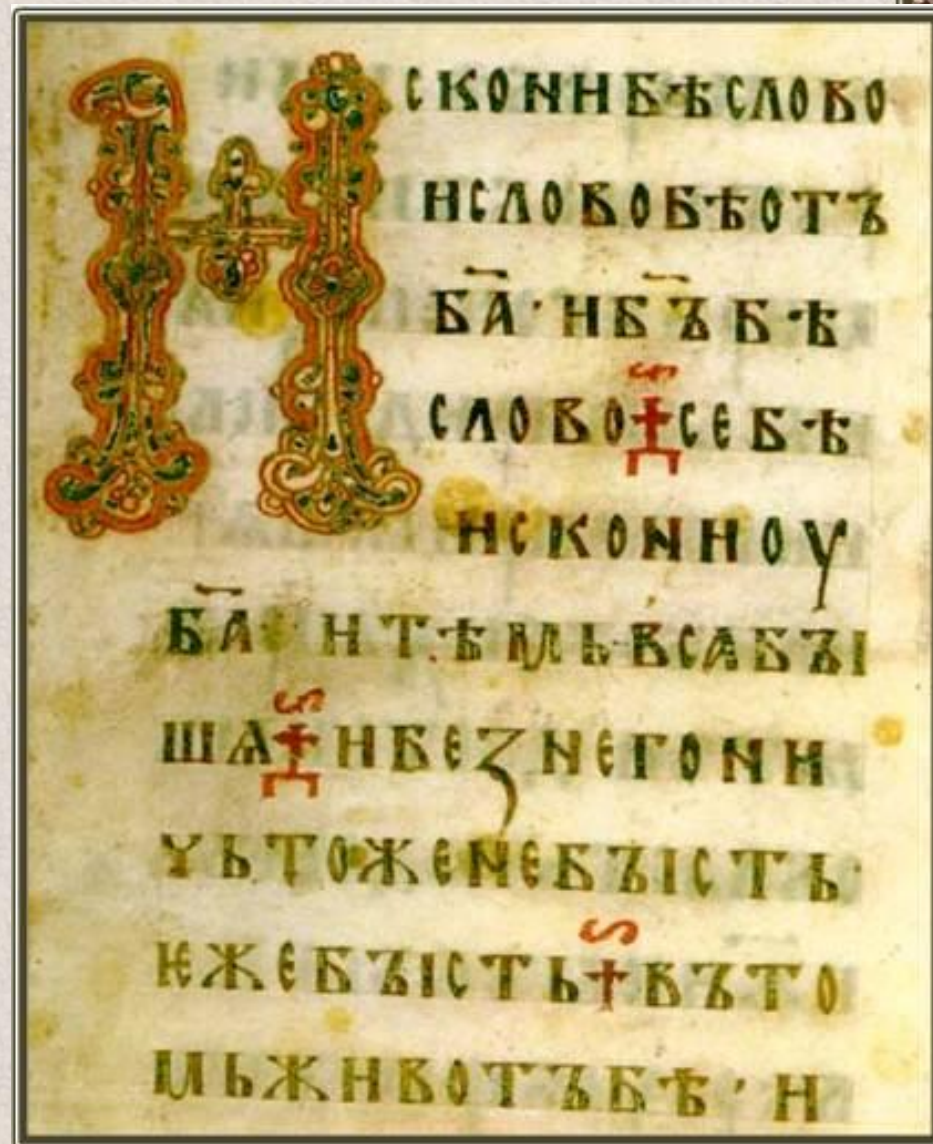 ИСКОНИБѢСЛОВО
ИСЛОВОБѢОТЪ
Б҃А·ИБ҃ЪБѢ
СЛОВО СЕБѢ
ИСКОНИОУ
Б҃А·ИТѢМЬВСАБꙐ
ШѦ ИБЕЗНЕГОНИ
ЧЬТОЖЕНЕБꙐСТЬ·
ѤЖЕБꙐСТЬ ВЪТО
МЬЖИВОТЪБѢ·И